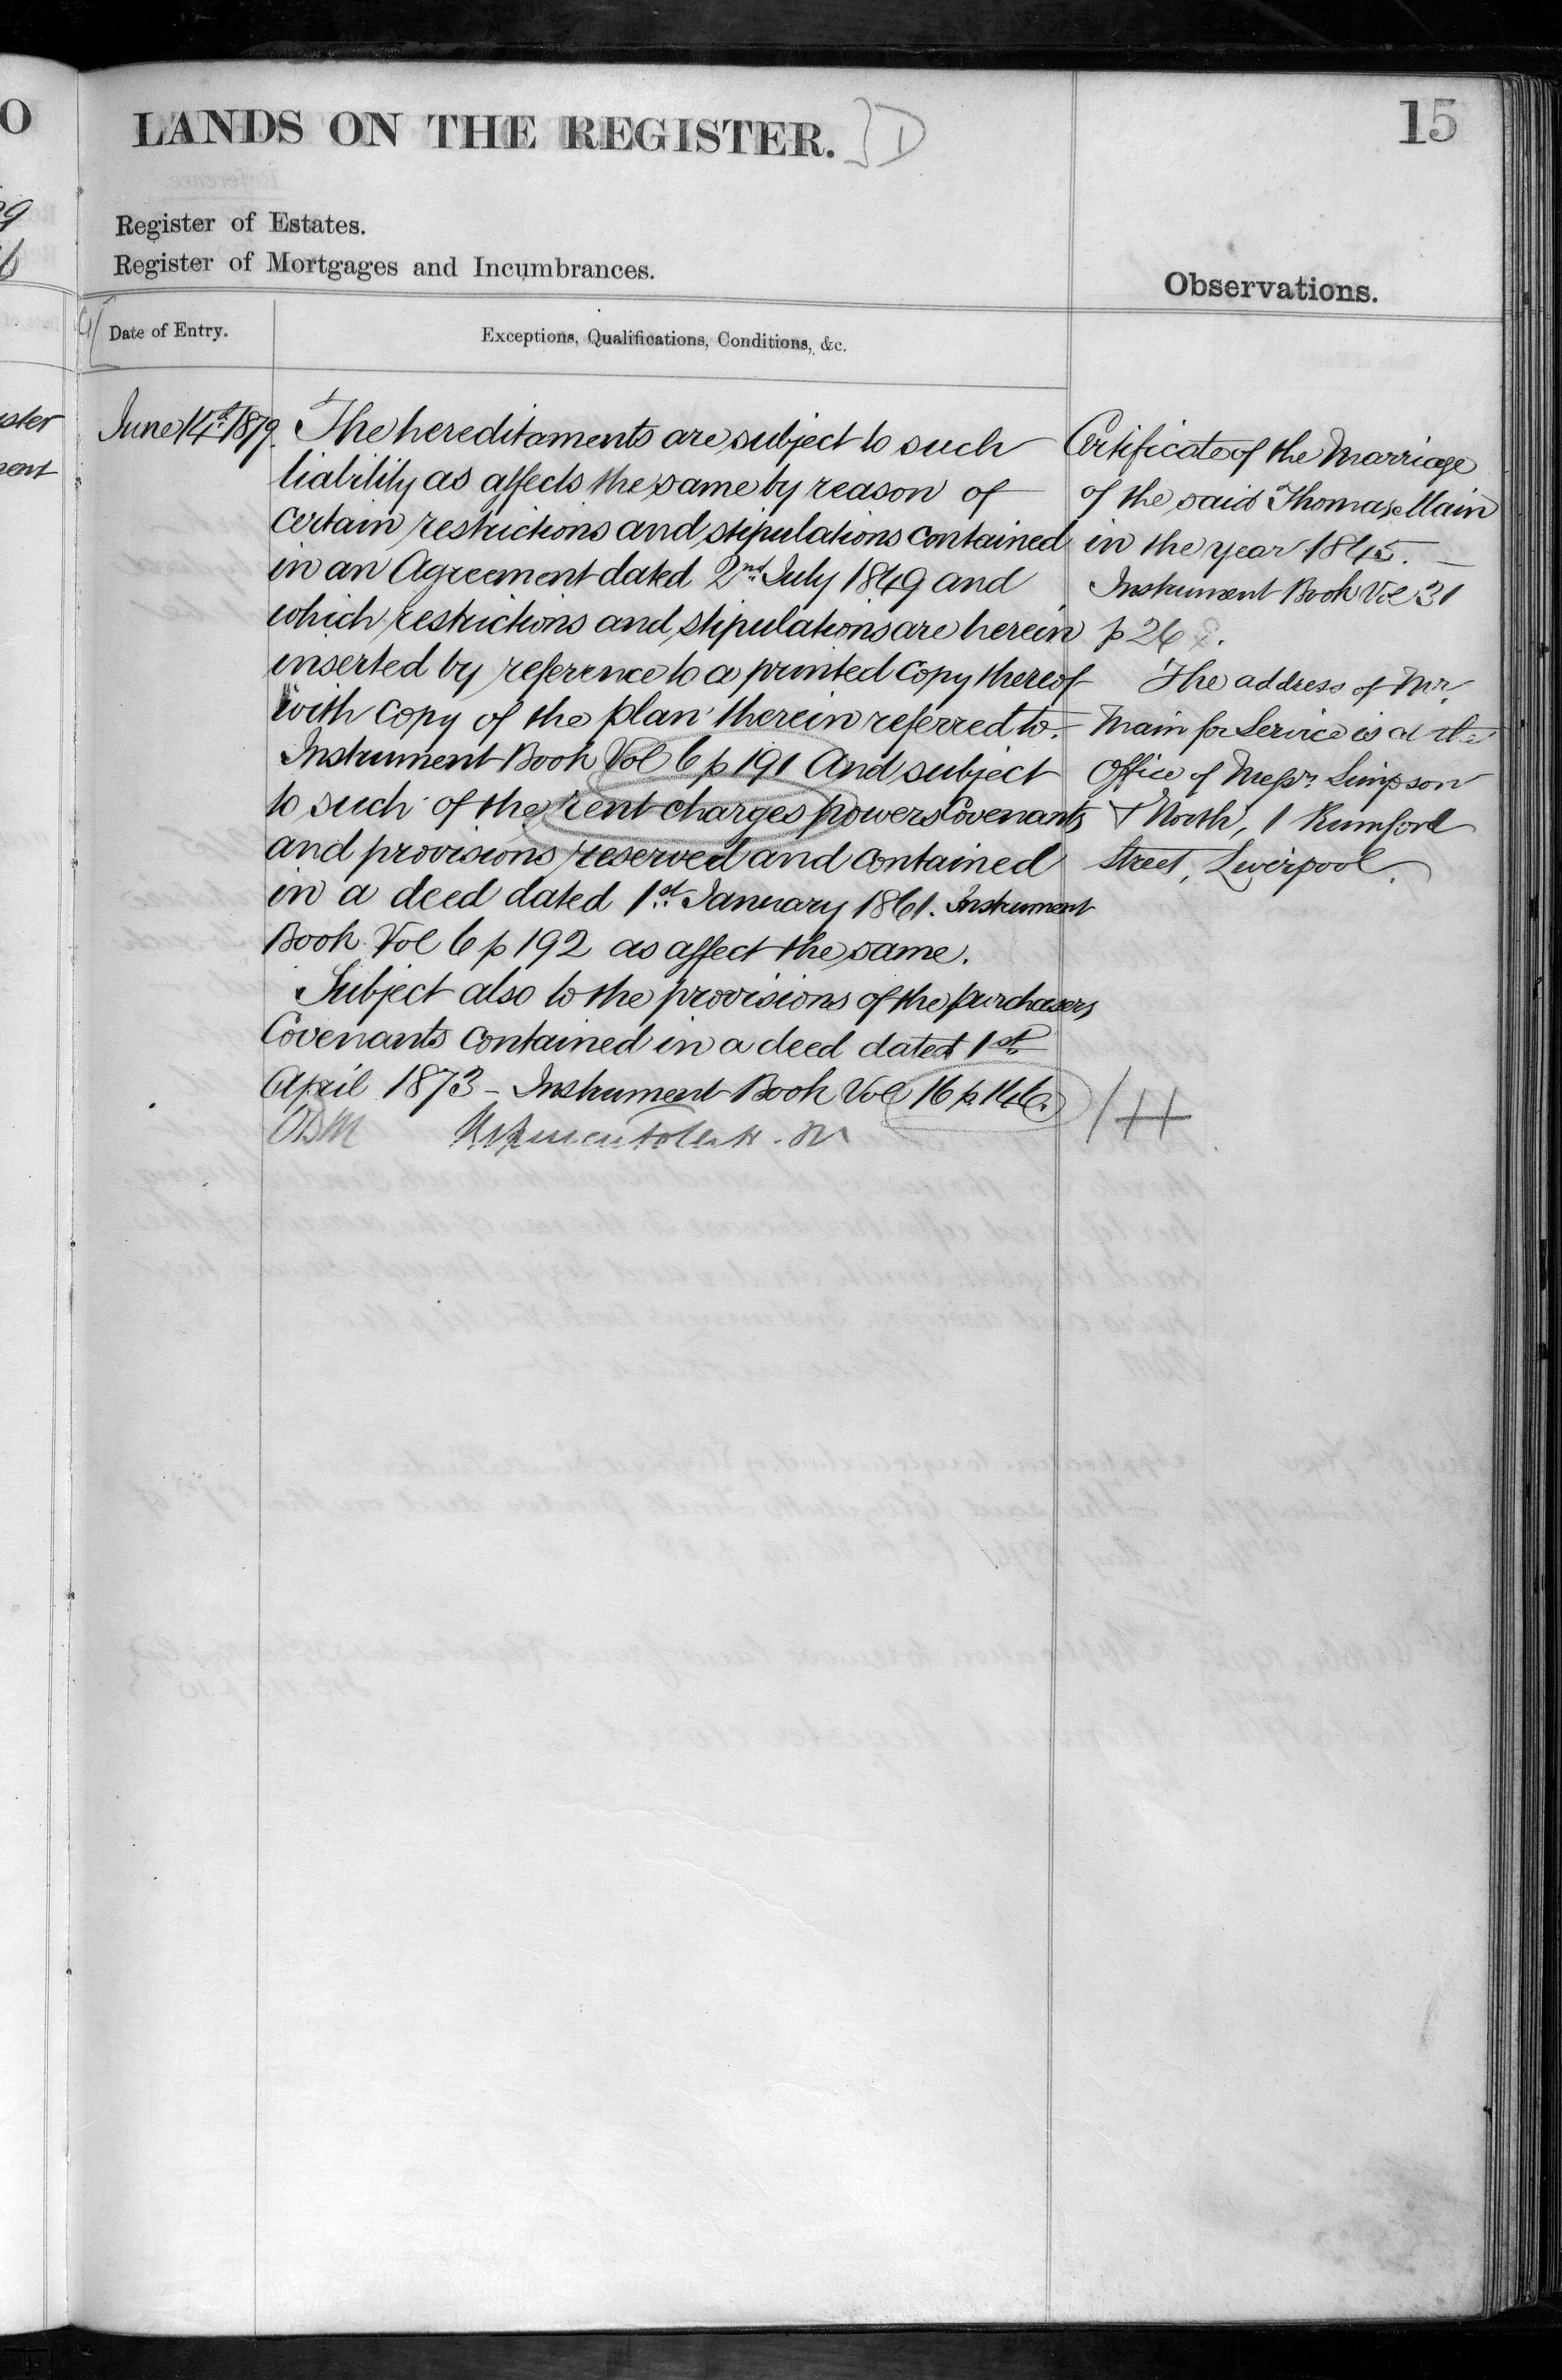 LANDS ON THE REGISTER. ]D
15
Register of Estates.
Register of Mortgages and Incumbrances.
Observations.
Date of Entry.
Exceptions, Qualifications, Conditions, &c.
June 14th 1879.
The hereditaments are subject to such
liability as affects the same by reason of
certain restrictions and stipulations contained
in an Agreement dated 2nd July 1849 and
which restrictions and stipulations are herein
inserted by reference to a printed copy thereof
with copy of the plan therein referred to.
Instrument Book Vol 6 p 191 And subject
to such of the rent charges powers Covenants
and provisions reserved and contained
in a deed dated 1st January 1861. Instrument
Book Vol 6 p 192 as affect the same.
Subject also to the provisions of the purchasers
Covenants contained in a deed dated 1st
April 1873 - Instrument Book Vol 16 p. 146.
Certificate of the Marriage
of the said Thomas Main
in the year 1845.
Instrument Book Vol 31
p 26
The address of Mr.
Main for Service is at the
Office of Messrs. Simpson
& North, 1 Rumford
Street, Liverpool.